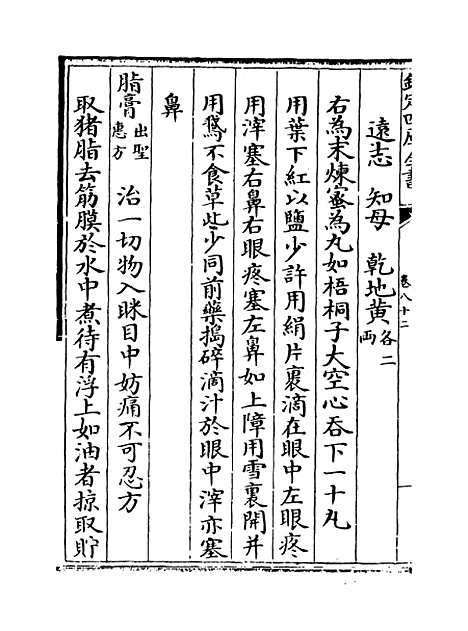 欽定四庫全書
卷八十二
遠志　知母　乾地黄各二両
右為末煉蜜為丸如梧桐子大空心吞下一十丸
用葉下紅以鹽少許用絹片裹滴在眼中左眼疼
用滓塞右鼻右眼疼塞左鼻如上障用雪裏開并
用鵞不食草些少同前藥搗碎滴汁於眼中滓亦塞
鼻
脂膏出聖惠方　治一切物入眯目中妨痛不可忍方
取猪脂去筋膜於水中煮待有浮上如油者掠取貯